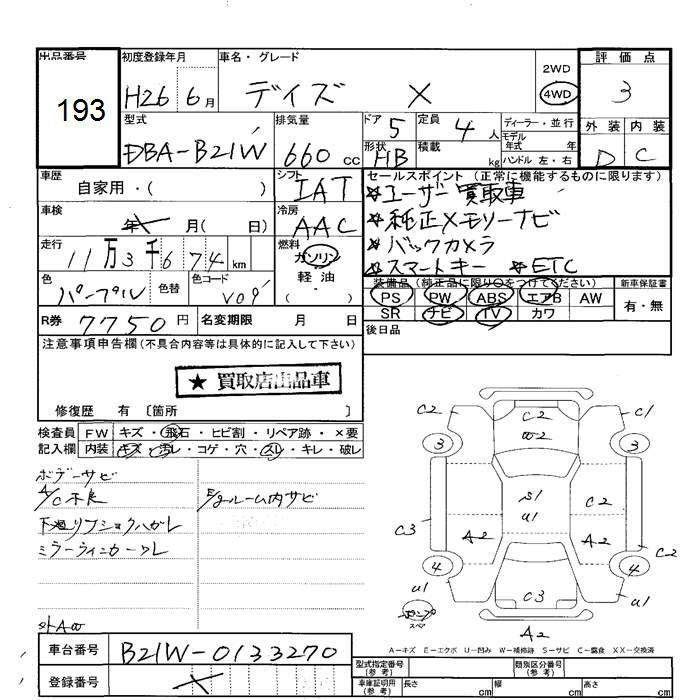 出品番号
193
初度登録年月
H26 6月
車名・グレード
デイズ X
2WD
4WD
評価点
3
型式
DBA-B21W
排気量
660 cc
ドア 5
定員 4人
ディーラー・並行
モデル年式 年式
形状 HB
積載 kg
ハンドル 左・右
外装 内装
D C
車歴
自家用・( )
シフト
IAT
セールスポイント(正常に機能するものに限ります)
ユーザー買取車
純正メモリーナビ
バックカメラ
スマートキー ETC
車検
年 月( 日)
冷房
AAC
走行
11万3千674km
燃料
ガソリン
軽油
・( )
色
パープル
色替
色コード
V09
装備品(純正品に限り○をつけてください)
PS PW ABS エアB AW
SR ナビ TV カワ
新車保証書
有・無
R券 7750円
名変期限 月 日
後日品
注意事項申告欄(不具合内容等は具体的に記入して下さい)
★買取店出品車
修復歴 有〔箇所 〕
検査員記入欄
FW キズ・飛石・ヒビ割・リペア跡・×要
内装 キズ・汚レ・コゲ・穴・スレ・キレ・破レ
ボデーサビ
A/C不良
E/gルーム内サビ
下廻リフショクハガレ
ミラーウィンカーワレ
外AW
C2
C2
W2
C1
3
3
S1
U1
C2
C3
A2
A2
C2
4
4
U1
C3
U1
A2
A-キズ E-エクボ U-凹み W-補修跡 S-サビ C-腐食 XX-交換済
車台番号
B21W-0133270
登録番号
型式指定番号(参考)
類別区分番号(参考)
車庫証明用(参考)
長さ cm
幅 cm
高さ cm